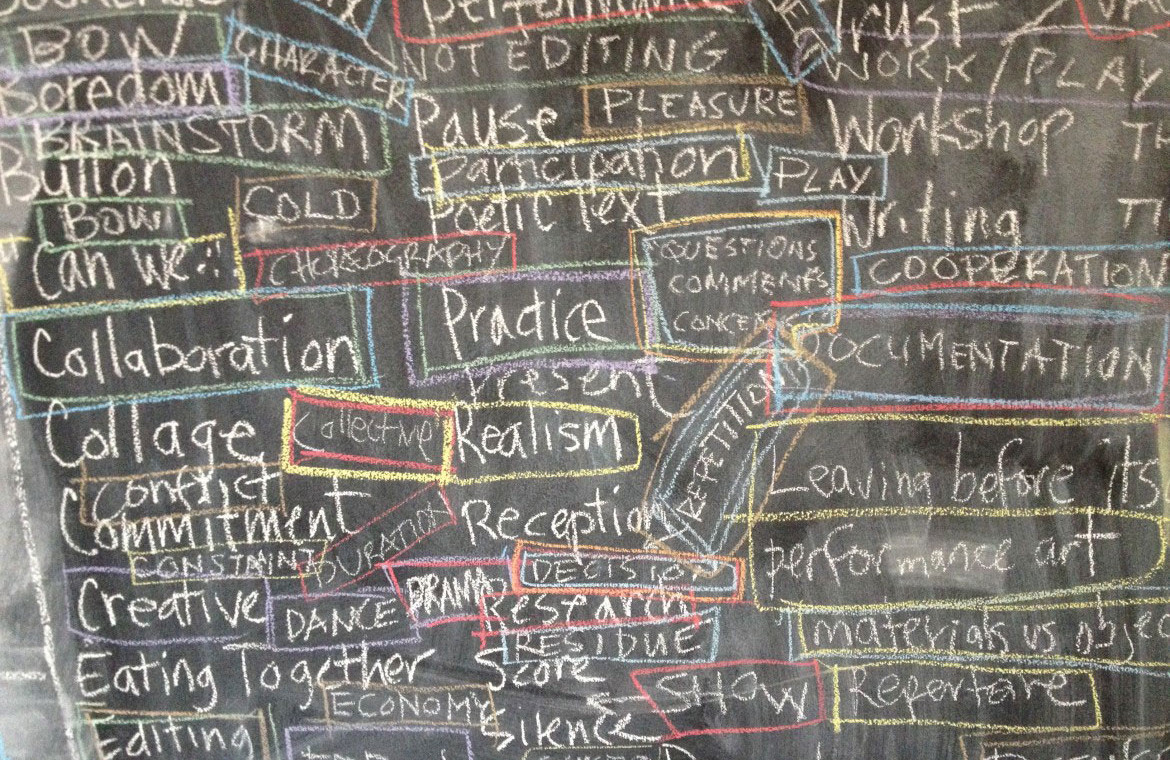 BOW
CHARACTER
Boredom
BRAINSTORM
Button
COLD
Bowl
Can we?!
CHOREOGRAPHY
Collaboration
Collage
Collective
Conflict
Commitment
CONSTRAINT
DURATION
Creative
DANCE
DRAMA
Eating Together
ECONOMY
Editing
NOT EDITING
Pause
PLEASURE
Participation
PLAY
Poetic Text
QUESTIONS
COMMENTS
Practice
Present
REPETITION
Realism
Reception
Research
RESIDUE
Score
SHOW
Silence
Trust
WORK/PLAY
Workshop
Writing
COOPERATION
DOCUMENTATION
Leaving before its
performance art
materials vs
Repertoire